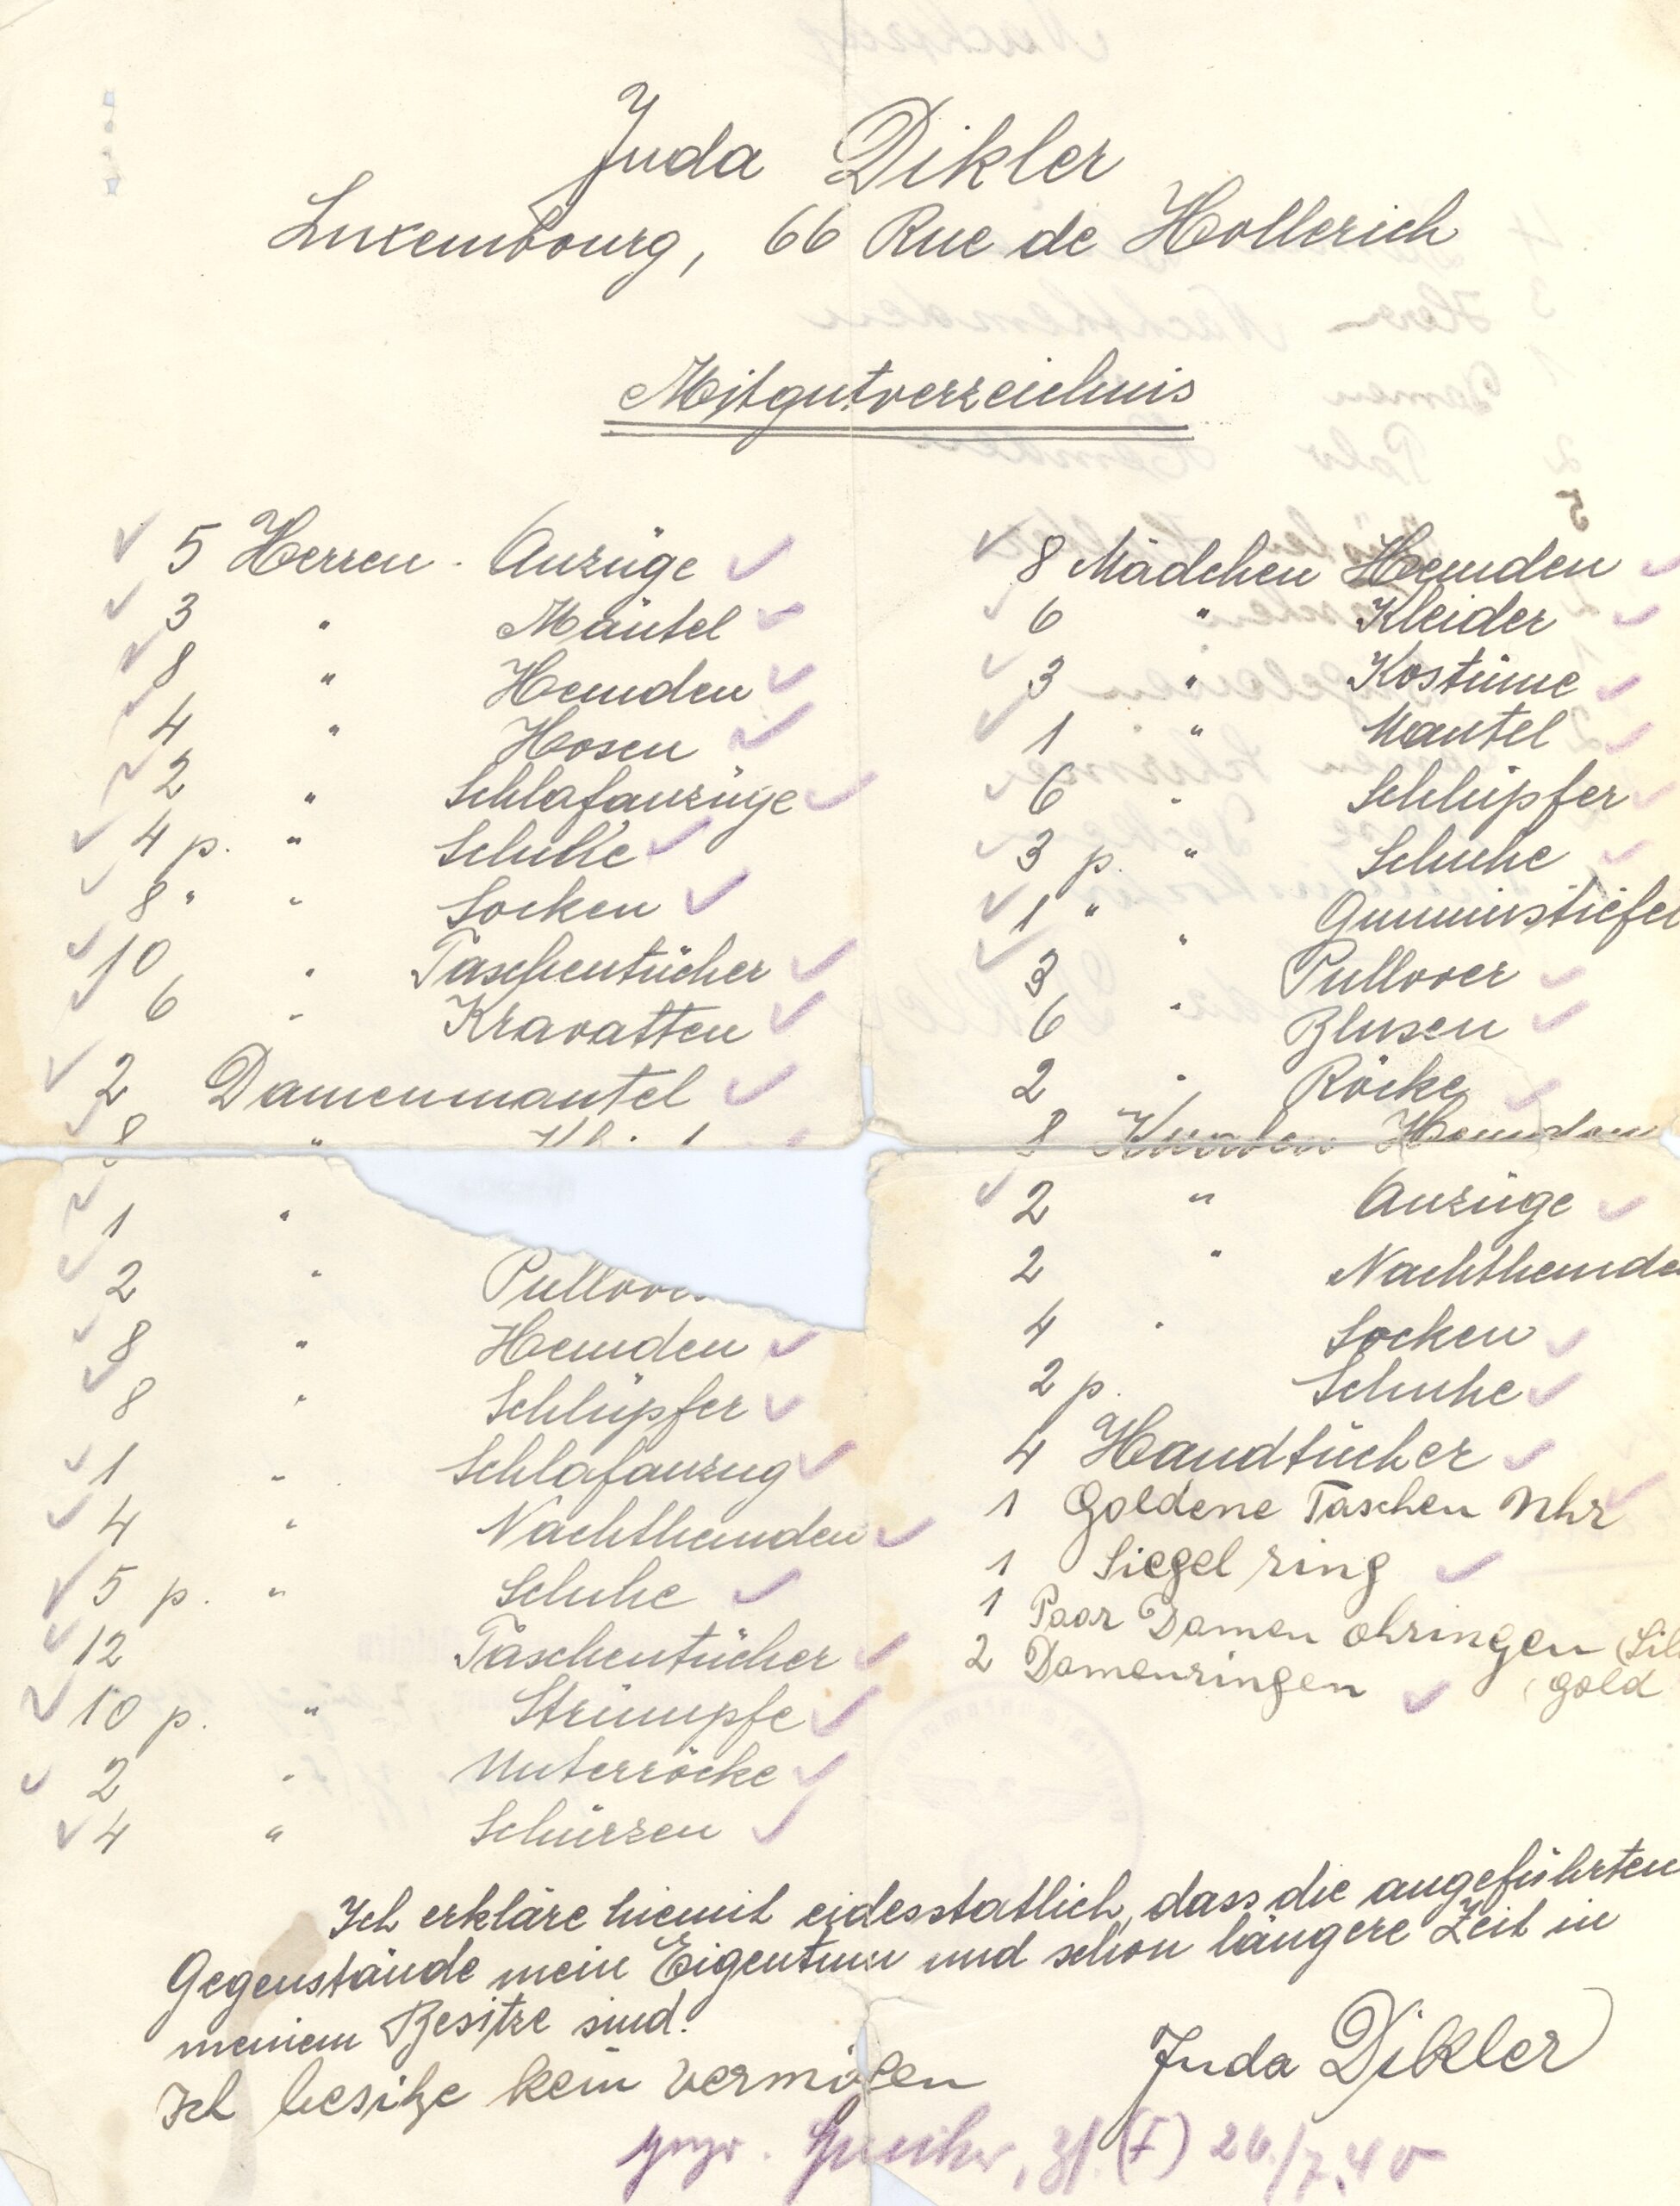 Juda Dikler
Luxembourg, 66 Rue de Hollerich
Mitgutverzeichnis
5 Herren - Anzüge
3 " Mäntel
8 " Hemden
4 " Hosen
2 " Schlafanzüge
4 p. " Schuhe
8 " " Socken
10 " Taschentücher
6 " Kravatten
2 Damenmantel
8 "
1 "
2 " Pullover
8 " Hemden
8 " Schlüpfer
1 " Schlafanzug
4 " Nachthemden
5 p. " Schuhe
12 Taschentücher
10 p. " Strümpfe
2 " Unterröcke
4 " Schürzen
8 Mädchen Hemden
6 " Kleider
3 " Kostüme
1 " Mantel
6 " Schlüpfer
3 p. " Schuhe
1 " " Gummistiefel
3 Pullover
6 " Blusen
2 " Röcke
8 Knaben Hemden
2 " Anzüge
2 " Nachthemde
4 " Socken
2 p. Schuhe
4 Handtücher
1 Goldene Taschen Uhr
1 Siegel ring
1 Paar Damen ohringen (Sil
2 Damenringen (gold
Ich erkläre hiemit eidesstatlich, dass die angeführten
Gegenstände mein Eigentum und schon längere Zeit in
meinem Besitze sind.
Ich besitze kein vermögen
Juda Dikler
(F) 26./7.40